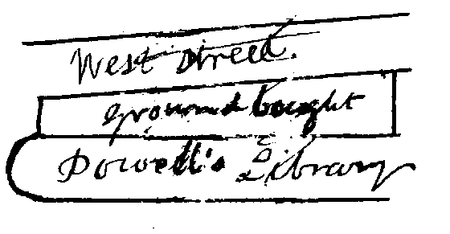 West Street.
ground bought
Powell's Library